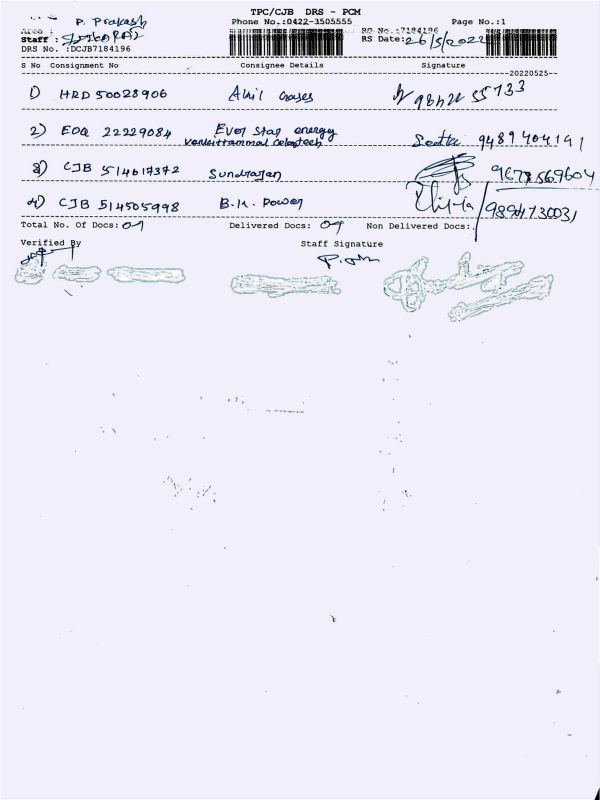 TPC/CJB DRS - PCM
P. Prakash Phone No.:0422-3505555 Page No.:1
Area :
Staff : RS No.:7184196
DRS No. :DCJB7184196 RS Date: 26/5/2022
S No Consignment No Consignee Details Signature
20220525
1) HRD 50028906 Anil
2) EOA 22229084 Ever Star energy
9489404191
3) CJB 514617372 Sundrajan 9677569604
4) CJB 514505998 B.K. Power 9894730031
Total No. Of Docs: 04 Delivered Docs: 04 Non Delivered Docs:
Verified By Staff Signature